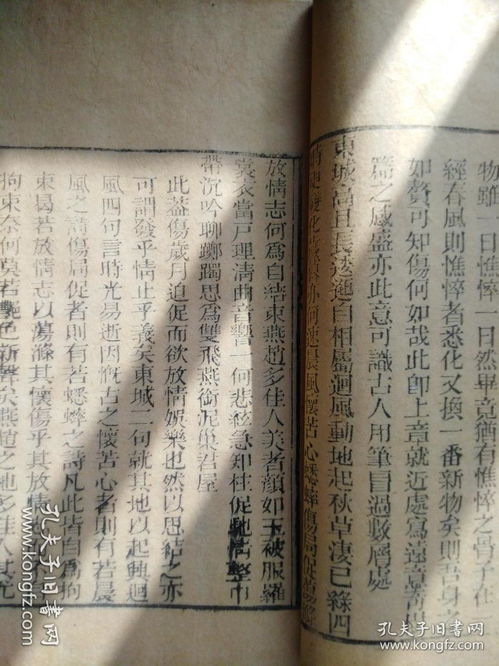 物雖一日憔悴一日然畢竟猶有憔悴之骨子在
經春風則憔悴者悉化又換一番新物矣則吾身之
如贅可知傷何如哉此即上章就近處寫遠意
齋之感盛亦此意可識古人用筆冒過數層處
東城高且長逶迤自相屬迴風動地起秋草淒已綠四
時更變化歲暮亦何速晨風懷苦心蟋蟀傷局促蕩滌
放情志何為自結束燕趙多佳人美者顏如玉被服羅
裳衣當戶理清曲音響一何悲絃急知柱促馳情整巾
帶沉吟聊躑躅思為雙飛燕銜泥巢君屋
此蓋傷歲月迫促而欲放情娛樂也然以思結之亦
可謂發乎情止乎義矣東城二句就其地以起興迴
風四句言時光易逝因慨古之懷苦心者則有若晨
風之詩傷局促者則有若蟋蟀之詩凡此皆自為拘
束曷若放情志以蕩滌其懷傷乎其放情
拘束奈何莫若艷色新聲矣燕趙之地多佳人其尤
孔夫子旧书网
孔夫子旧书网
www.kongfz.com